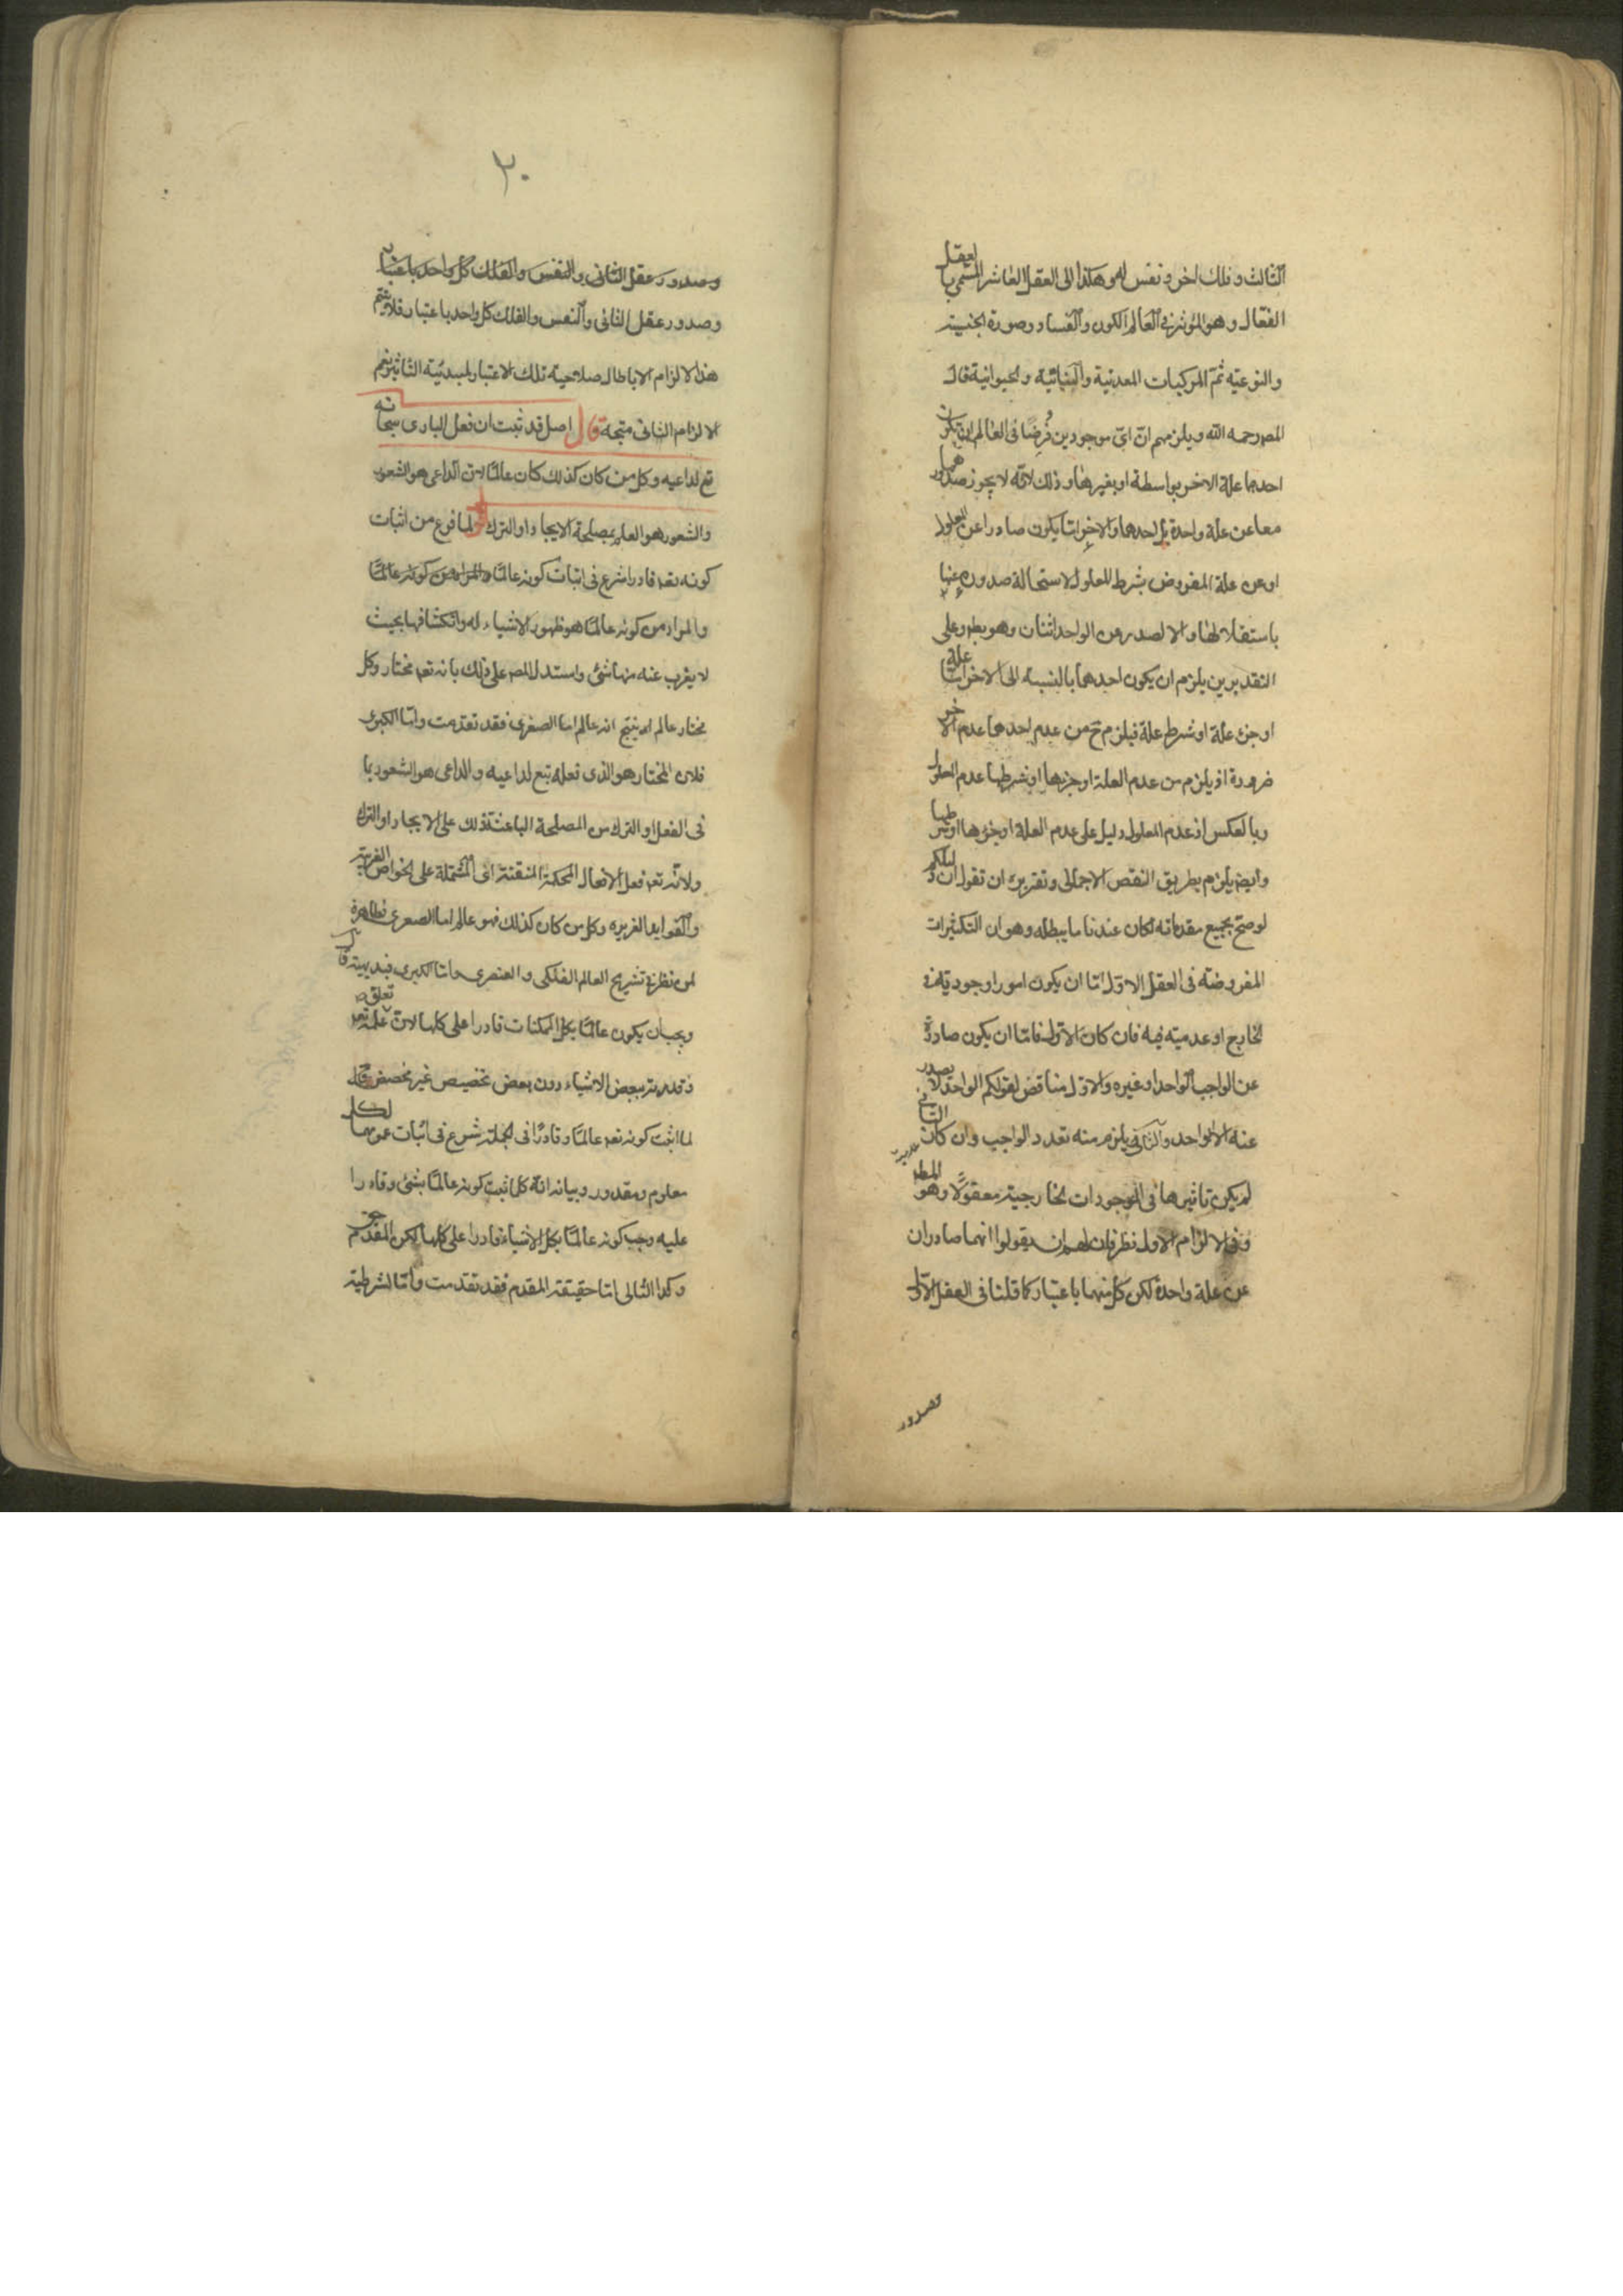 الثالث وفلك اخر ونفس له وهكذا الى العقل العاشر المسمى بالعقل
الفعال وهو المؤثر فى العالم الكون والفساد وصورة الجنسية
والنوعية ثم المركبات المعدنية والنباتية والحيوانية قال
المص رحمه الله ويلزمهم ان اى موجودين فُرِضَا فى العالم ان يكون
احدهما علة الاخر بواسطة او بغيرها وذلك لانه لا يجوز صدورهما
معا عن علة واحدة بل احدهما والاخر انما يكون صادرا عن المعلول
او عن علة المفروض بشرط المعلول لاستحالة صدوره عنها
باستقلالها والا لصدر من الواحد اثنان وهو بط وعلى
التقديرين يلزم ان يكون احدهما بالنسبة الى الاخر اما علة
او جزء علة او شرط علة فيلزم ح من عدم احدهما عدم الاخر
ضرورة اذ يلزم من عدم العلة او جزءها او شرطها عدم المعلول
وبالعكس اذ عدم المعلول دليل على عدم العلة او جزءها او شرطها
وايض يلزم بطريق النقض الاجمالى وتقريره ان تقول ان دليلكم
لو صح بجميع مقدماته لكان عندنا ما يبطله وهو ان التكثيرات
المفروضة فى العقل الاول اما ان يكون امورا وجودية فى
الخارج او عدمية فيه فان كان الاول فاما ان يكون صادرة
عن الواجب الواحد او غيره والاول مناقض لقولكم الواحد لا يصدر
عنه الا الواحد والثانى يلزم منه تعدد الواجب وان كان الثانى
لم يكن تاثيرها فى الموجودات الخارجية معقولًا وهو المط
وفى الالزام الاول نظر فان لهم ان يقولوا انهما صادران
عن علة واحدة لكن كل منهما باعتبار كما قلنا فى العقل الاول
وصدور
٢٠
وصدور عقل الثانى والنفس والفلك كل واحد باعتبار
وصدور عقل الثانى والنفس والفلك كل واحد باعتبار فلا يتم
هذا الالزام الا بابطال صلاحية تلك الاعتبار لمبدئية التاثير نعم
الالزام الثانى متجه قال اصل قد ثبت ان فعل البارى سبحانه
تبع لداعيه وكل من كان كذلك كان عالمًا لان الداعى هو الشعور
والشعور هو العلم بمصلحة الايجاد او الترك لما فرغ من اثبات
كونه تعه قادرا شرع فى اثبات كونه عالمًا والمراد من كونه عالمًا
والمراد من كونه عالمًا هو ظهور الاشياء له وانكشافها بحيث
لا يعزب عنه منها شئ واستدل المص على ذلك بانه تعه مختار وكل
مختار عالم ينتج انه عالم اما الصغرى فقد تقدمت واما الكبرى
فلان المختار هو الذى فعله تبع لداعيه والداعى هو الشعور بما
فى الفعل او الترك من المصلحة الباعثة ذلك على الايجاد او الترك
ولانه تعه فعل الافعال المحكمة المتقنة اى المشتملة على الخواص الغريبة
والفوايد الغزيره وكل من كان كذلك فهو عالم اما الصغرى فظاهرة
لمن نظر فى تشريح العالم الفلكى والعنصرى واما الكبرى فبديهية قال
ويجب ان يكون عالمًا بكل الممكنات قادرا على كلها لان تعلق علمه تعه
وقدرته ببعض الاشياء دون بعض تخصيص غير مخصص
لما اثبت كونه تعه عالمًا وقادرًا فى الجملة شرع فى اثبات عمومهما لكل
معلوم ومقدور وبيانه انه كلما ثبت كونه عالمًا بشئ وقادرا
عليه وجب كونه عالمًا بكل الاشياء قادرا على كلها لكن المقدم حق
وكذا التالى اما حقيقة المقدم فقد تقدمت واما الشرطية